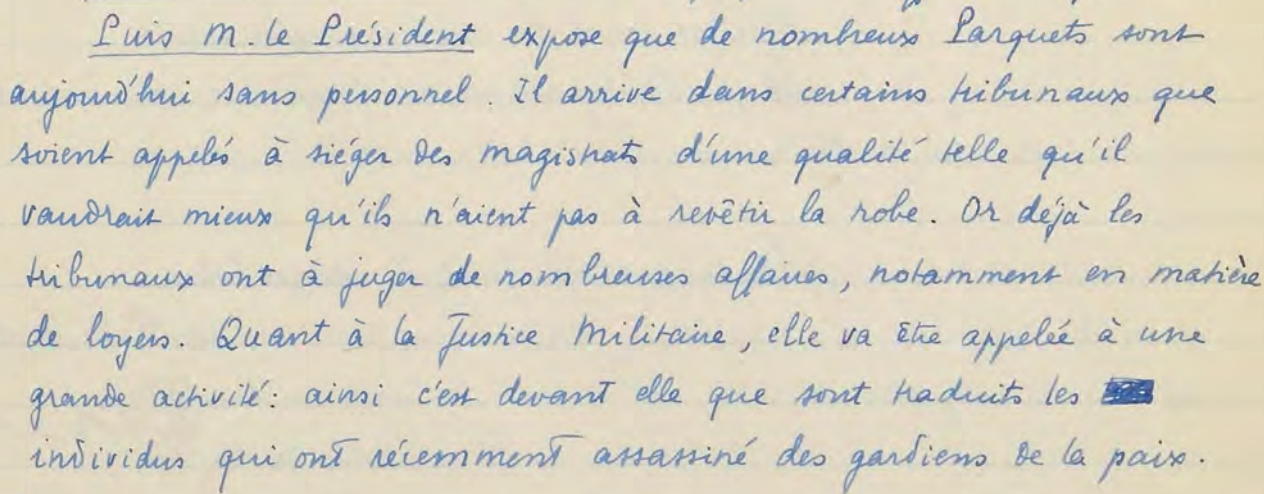 Puis M. le Président expose que de nombreux Parquets sont
aujourd'hui sans personnel. Il arrive dans certains tribunaux que
soient appelés à siéger des magistrats d'une qualité telle qu'il
vaudrait mieux qu'ils n'aient pas à revêtir la robe. Or déjà les
tribunaux ont à juger de nombreuses affaires, notamment en matière
de loyers. Quant à la Justice Militaire, elle va être appelée à une
grande activité: ainsi c'est devant elle que sont traduits les
individus qui ont récemment assassiné des gardiens de la paix.